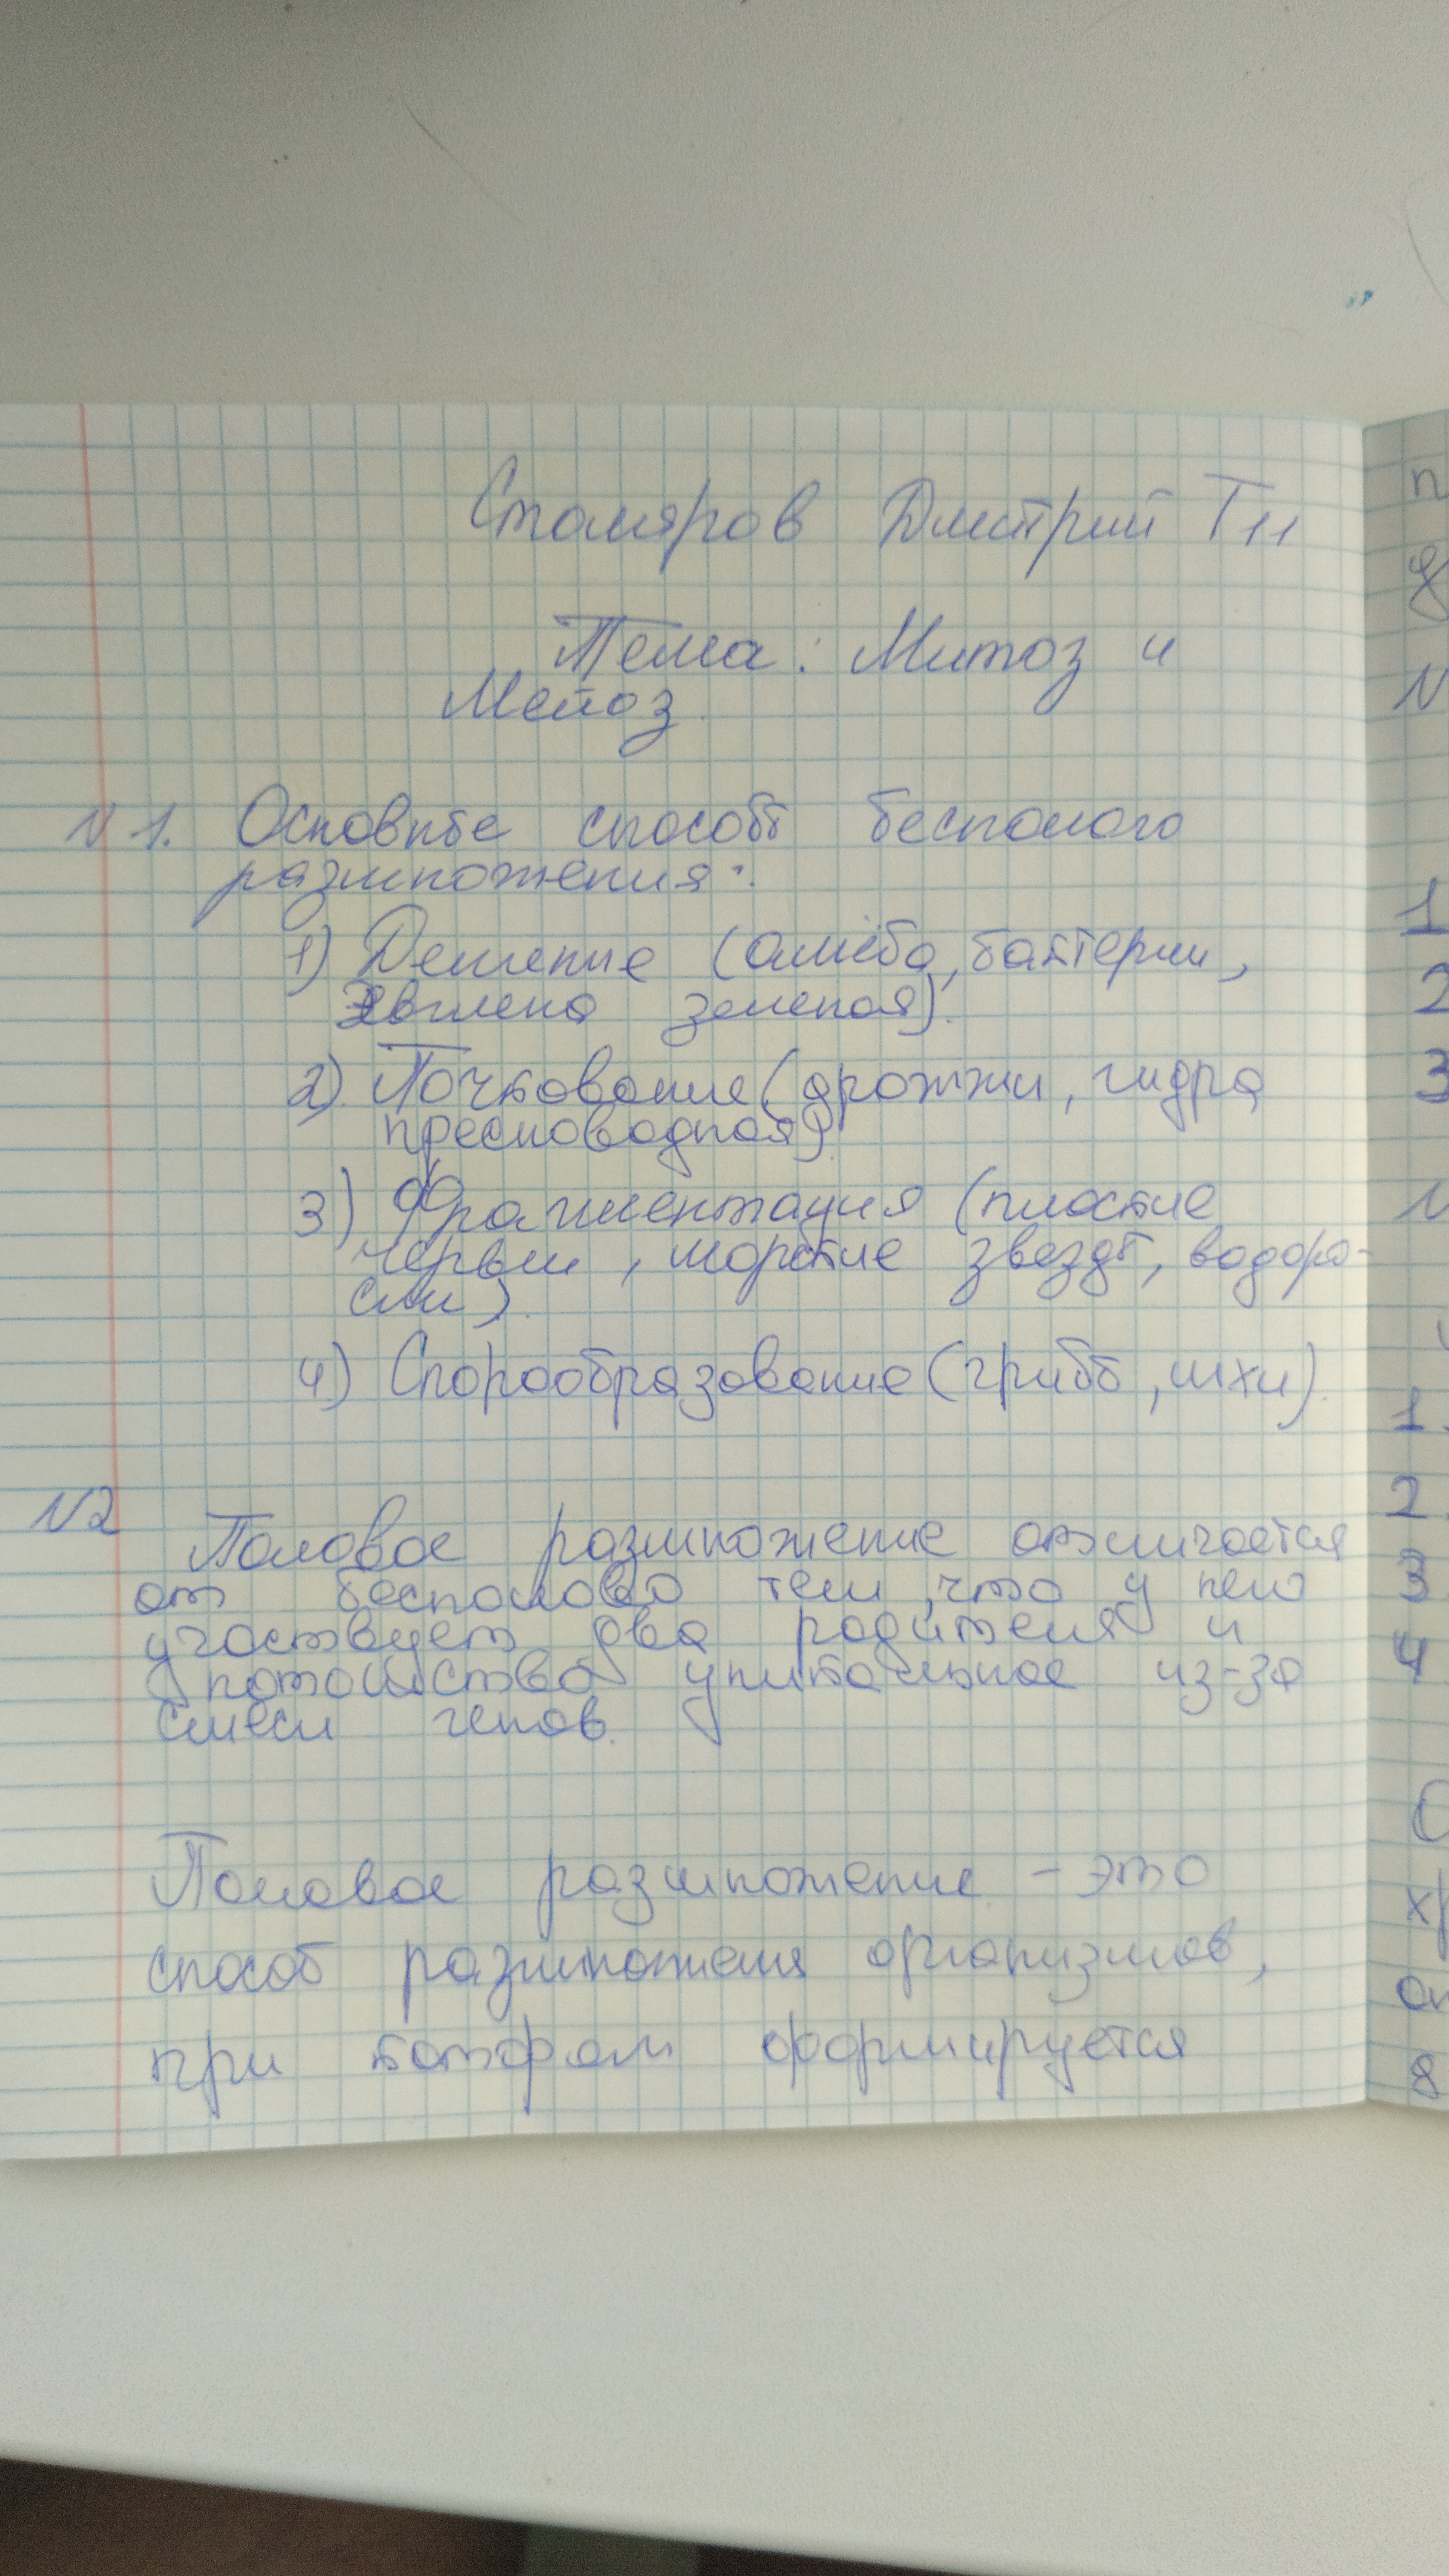 Столяров Дмитрий Т11
Тема: Митоз и
Мейоз.
N 1. Основные способы бесполого
размножения:
1) Деление (амёба, бактерии,
Эвглена зеленая).
2) Почкование (дрожжи, гидра
пресноводная).
3) Фрагментация (плоские
черви, морские звезды, водоро-
сли).
4) Спорообразование (грибы, мхи).
N2
Половое размножение отличается
от бесполово тем, что у него
участвует два родителя и
потомство уникальное из-за
смеси генов.
Половое размножение - это
способ размножения организмов,
при котором формируется
п
N
1
2
3
1.
2.
3
4
8